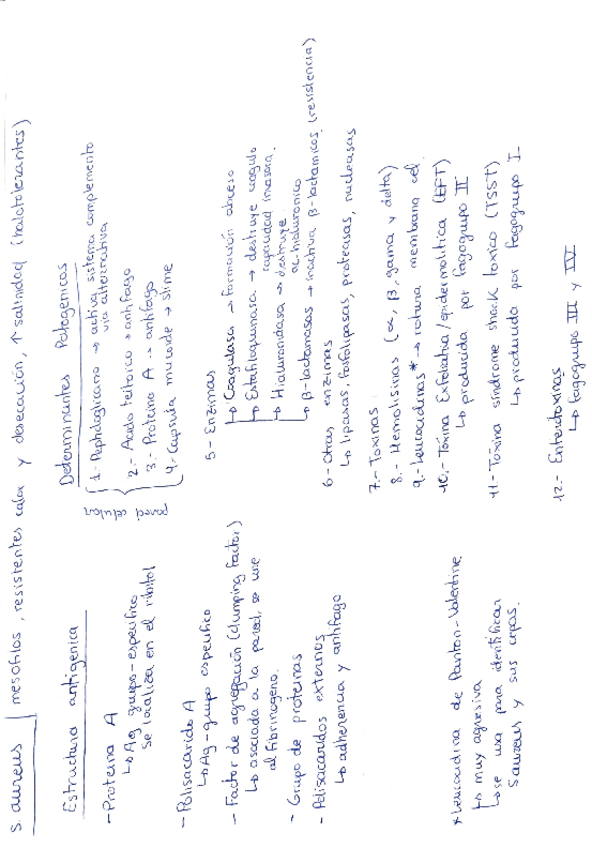 S. aureus | mesofilos, resistentes calor y desecación, ↑ salinidad (halotolerantes)
Estructura antigenica
- Proteina A
↳ Ag grupo-especifico
se localiza en el ribitol
- Polisacarido A
↳ Ag-grupo especifico
- Factor de agregación (clumping factor)
↳ asociada a la pared, se une
al fibrinogeno.
- Grupo de proteinas
- Polisacaridos externos
↳ adherencia y antifago
* Leucocidina de Panton-Valentine
↳ muy agresiva
↳ se usa para identificar
S. aureus y sus cepas.
Determinantes Patogenicos
pared celular
1.- Peptidoglicano → activa sistema complemento
via alternativa
2.- Acido teitoico → antifago
3.- Proteina A → antifago
4.- Capsula mucoide → slime
5- Enzimas
↳ Coagulasa → formación abceso
↳ Estafiloquinasa → destruye coagulo
capacidad invasora.
↳ Hialuronidasa → destruye
ac. hialuronico
↳ β-lactamasas → inactiva β-lactamicos (resistencia)
6- Otras enzimas
↳ lipasas, fosfolipasas, proteasas, nucleasas
7.- Toxinas
8.- Hemolisinas (α, β, gama y delta)
9.- Leucocidinas* → rotura membrana cel.
10.- Toxina Exfoliatina/epidermolitica (EFT)
↳ producida por fagogrupo II
11.- Toxina sindrome shock toxico (TSST)
↳ producida por fagogrupo I
12.- Enterotoxinas
↳ fagogrupo III y IV